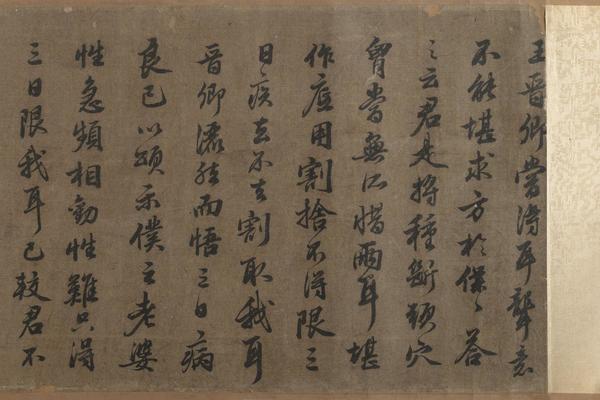 王晋卿嘗得耳聾意
不能堪求方於僕々答
之云君是將種斷頭穴
胷當無所惜兩耳堪
作底用割捨不得限三
日疾去不去割取我耳
晋卿灑然而悟三日病
良已以頌示僕云老婆
性急頻相勸性難只得
三日限我耳已較君不